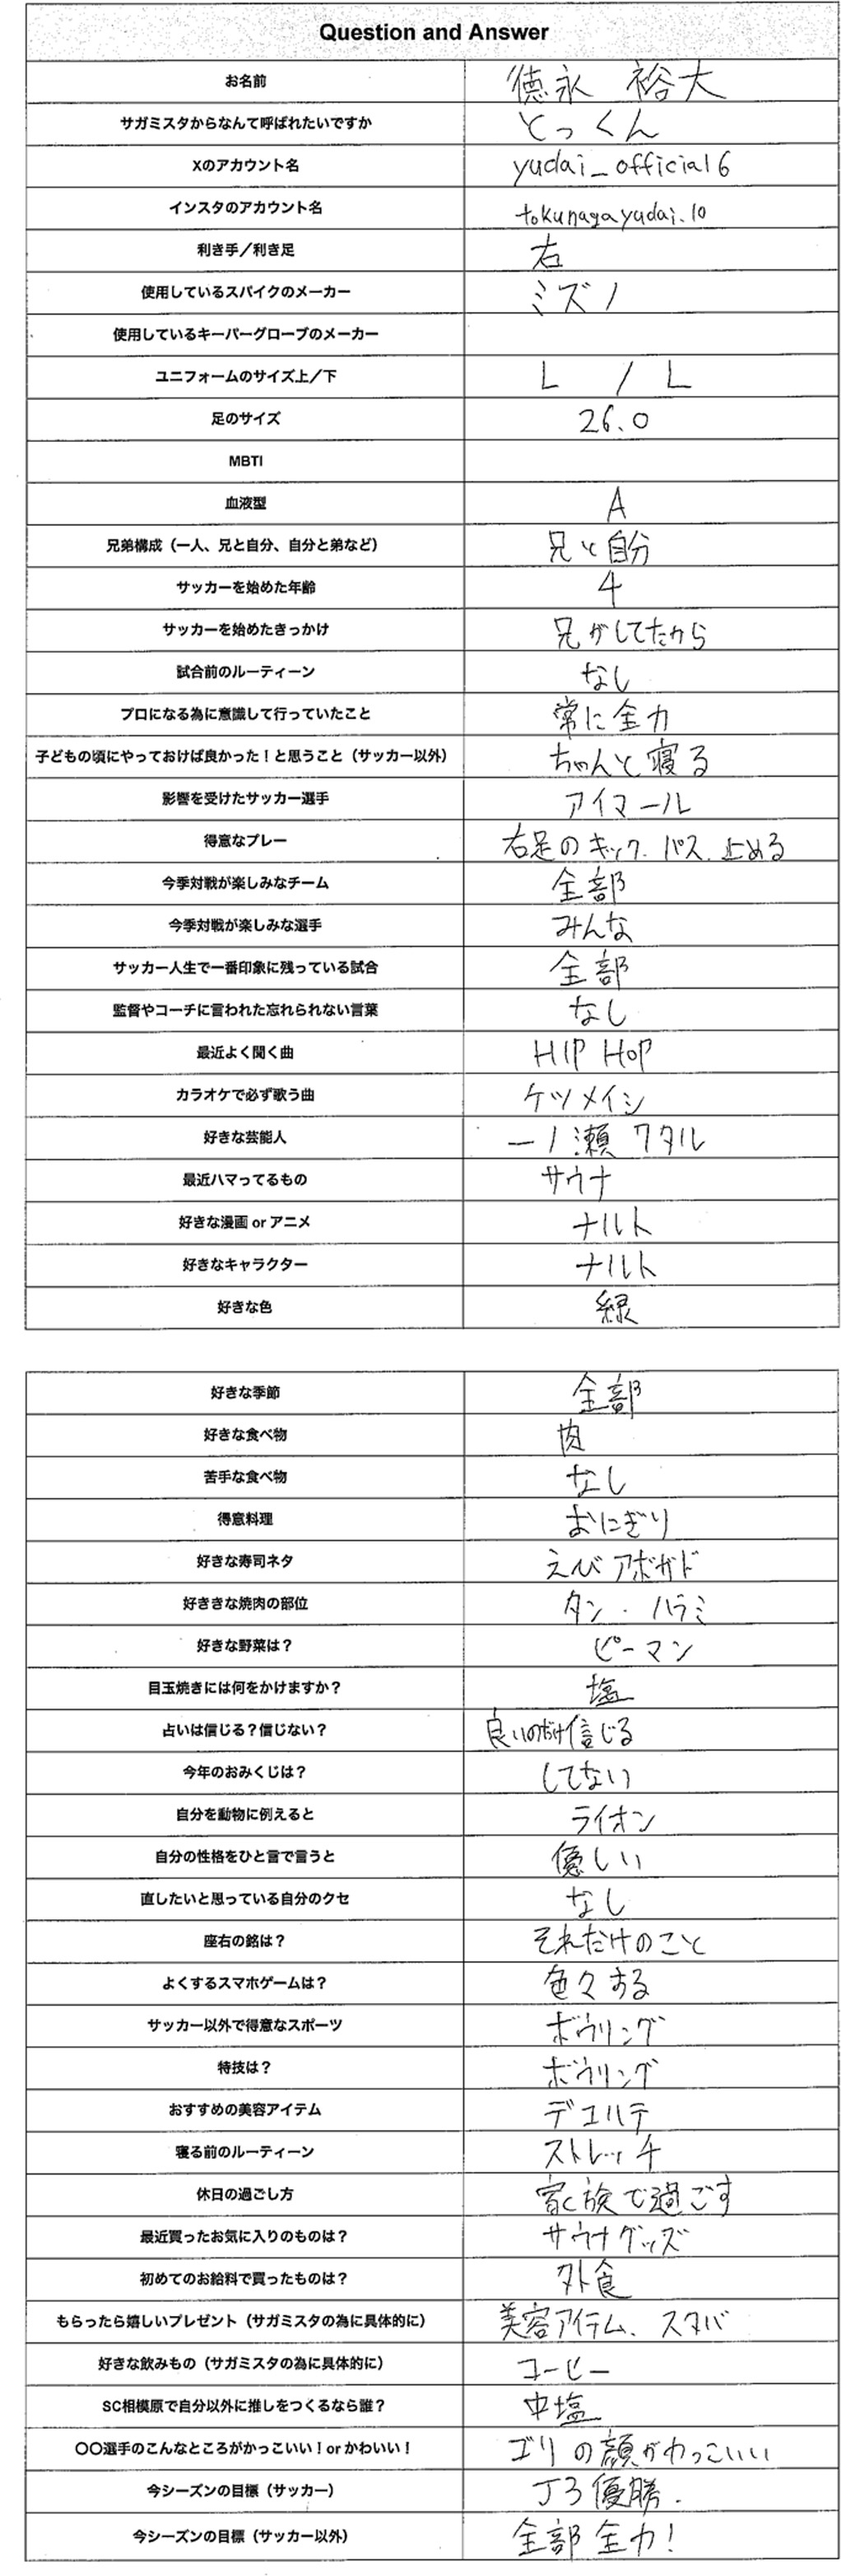 Question and Answer
お名前 德永 裕大
サガミスタからなんて呼ばれたいですか とっくん
Xのアカウント名 yudai_official6
インスタのアカウント名 tokunagayudai.10
利き手／利き足 右
使用しているスパイクのメーカー ミズノ
使用しているキーパーグローブのメーカー
ユニフォームのサイズ上／下 L / L
足のサイズ 26.0
MBTI
血液型 A
兄弟構成（一人、兄と自分、自分と弟など） 兄と自分
サッカーを始めた年齢 4
サッカーを始めたきっかけ 兄がしてたから
試合前のルーティーン なし
プロになる為に意識して行っていたこと 常に全力
子どもの頃にやっておけば良かった！と思うこと（サッカー以外） ちゃんと寝る
影響を受けたサッカー選手 アイマール
得意なプレー 右足のキック、パス、止める
今季対戦が楽しみなチーム 全部
今季対戦が楽しみな選手 みんな
サッカー人生で一番印象に残っている試合 全部
監督やコーチに言われた忘れられない言葉 なし
最近よく聞く曲 HIP HOP
カラオケで必ず歌う曲 ケツメイシ
好きな芸能人 一ノ瀬 ワタル
最近ハマってるもの サウナ
好きな漫画 or アニメ ナルト
好きなキャラクター ナルト
好きな色 緑
好きな季節 全部
好きな食べ物 肉
苦手な食べ物 なし
得意料理 おにぎり
好きな寿司ネタ えびアボガド
好ききな焼肉の部位 タン・ハラミ
好きな野菜は？ ピーマン
目玉焼きには何をかけますか？ 塩
占いは信じる？信じない？ 良いのだけ信じる
今年のおみくじは？ してない
自分を動物に例えると ライオン
自分の性格をひと言で言うと 優しい
直したいと思っている自分のクセ なし
座右の銘は？ それだけのこと
よくするスマホゲームは？ 色々する
サッカー以外で得意なスポーツ ボウリング
特技は？ ボウリング
おすすめの美容アイテム デコルテ
寝る前のルーティーン ストレッチ
休日の過ごし方 家族で過ごす
最近買ったお気に入りのものは？ サウナグッズ
初めてのお給料で買ったものは？ 外食
もらったら嬉しいプレゼント（サガミスタの為に具体的に） 美容アイテム、スタバ
好きな飲みもの（サガミスタの為に具体的に） コーヒー
SC相模原で自分以外に推しをつくるなら誰？ 中塩
〇〇選手のこんなところがかっこいい！or かわいい！ ゴリの顔がかっこいい
今シーズンの目標（サッカー） J3優勝.
今シーズンの目標（サッカー以外） 全部全力！